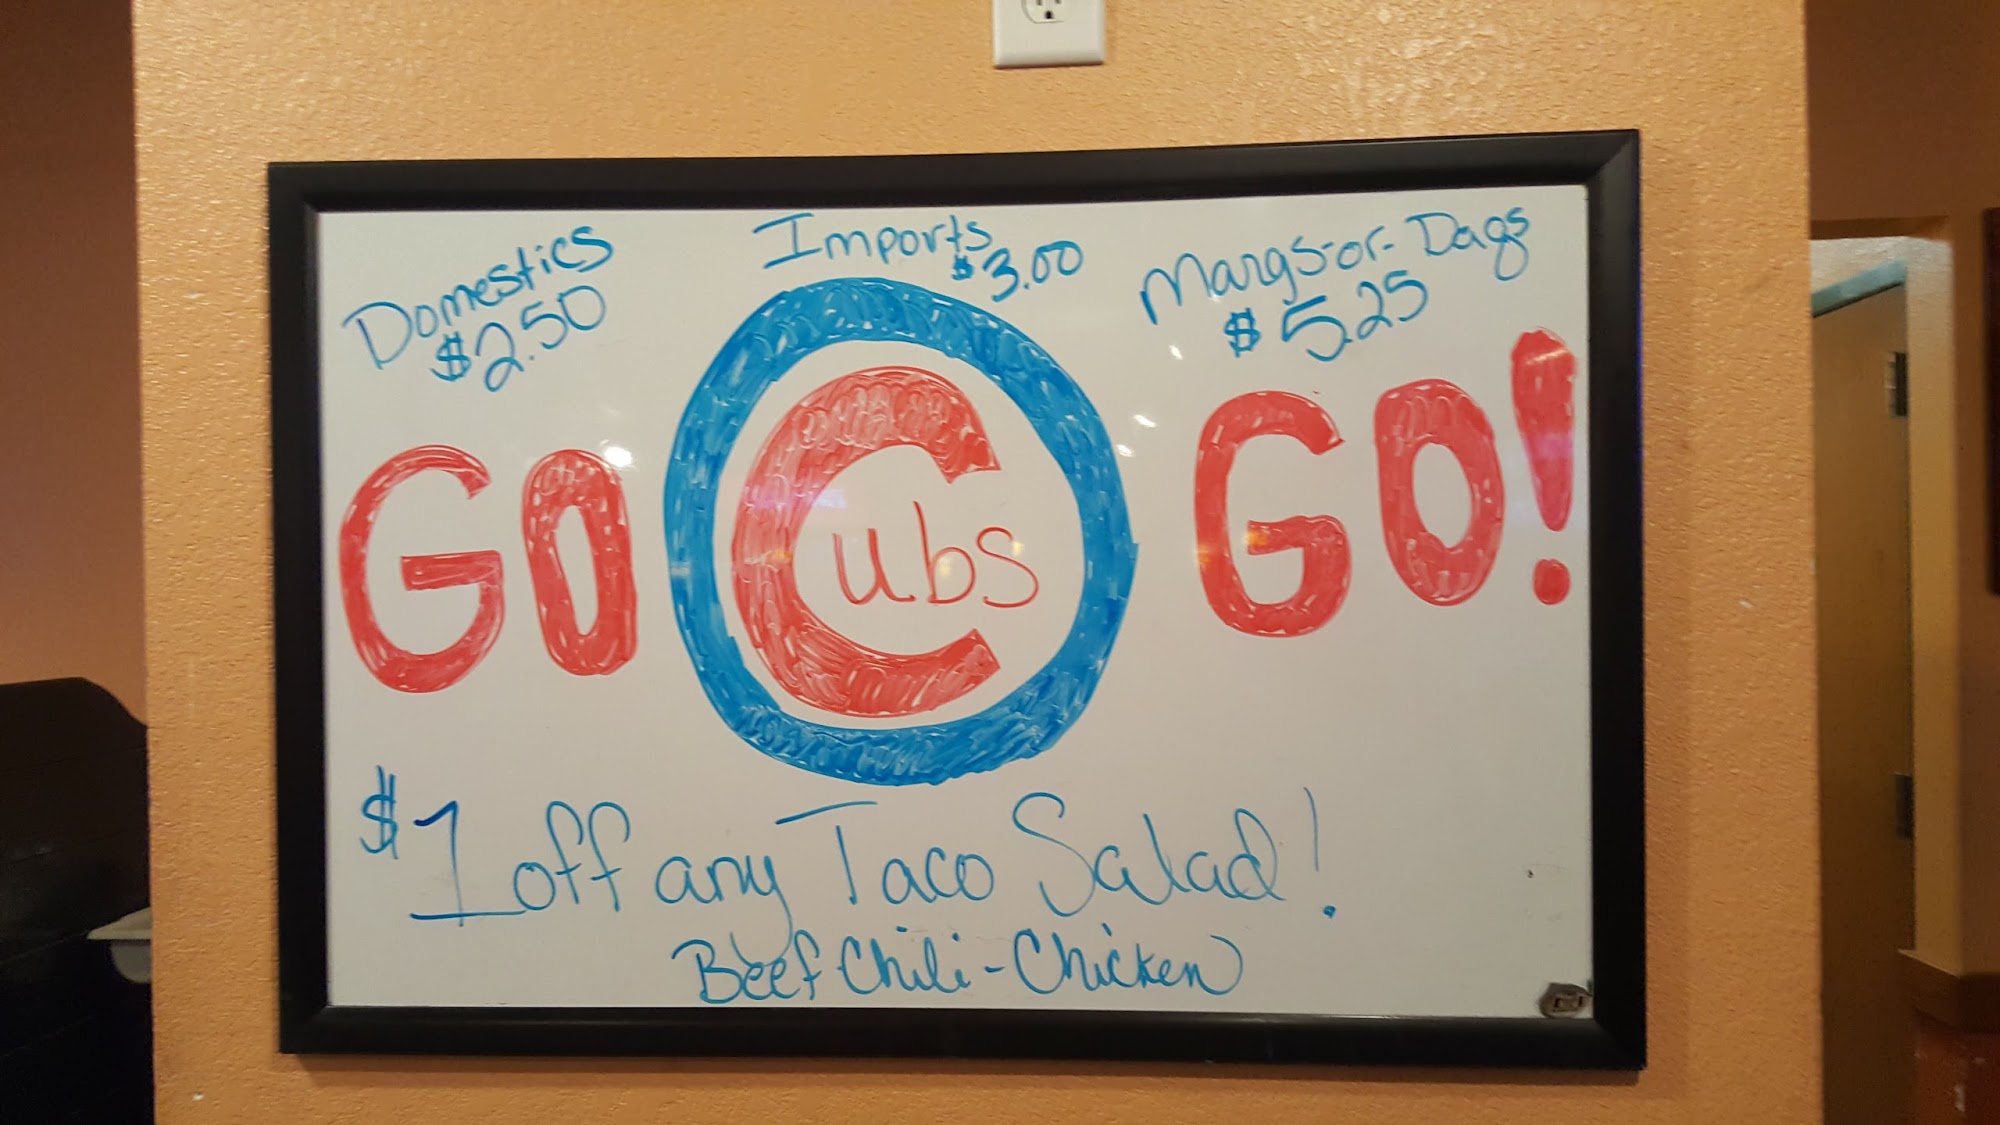 Domestics
$2.50
Imports
$3.00
Margs-or-Dags
$5.25
GO Cubs GO!
$1 off any Taco Salad!
Beef Chili-Chicken